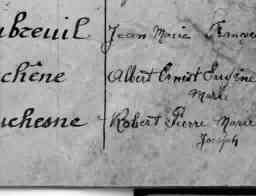 ubreuil Jean Marie François
chêne Albert Ernest Eugène
Marie
uchesne Robert Pierre Marie
Joseph